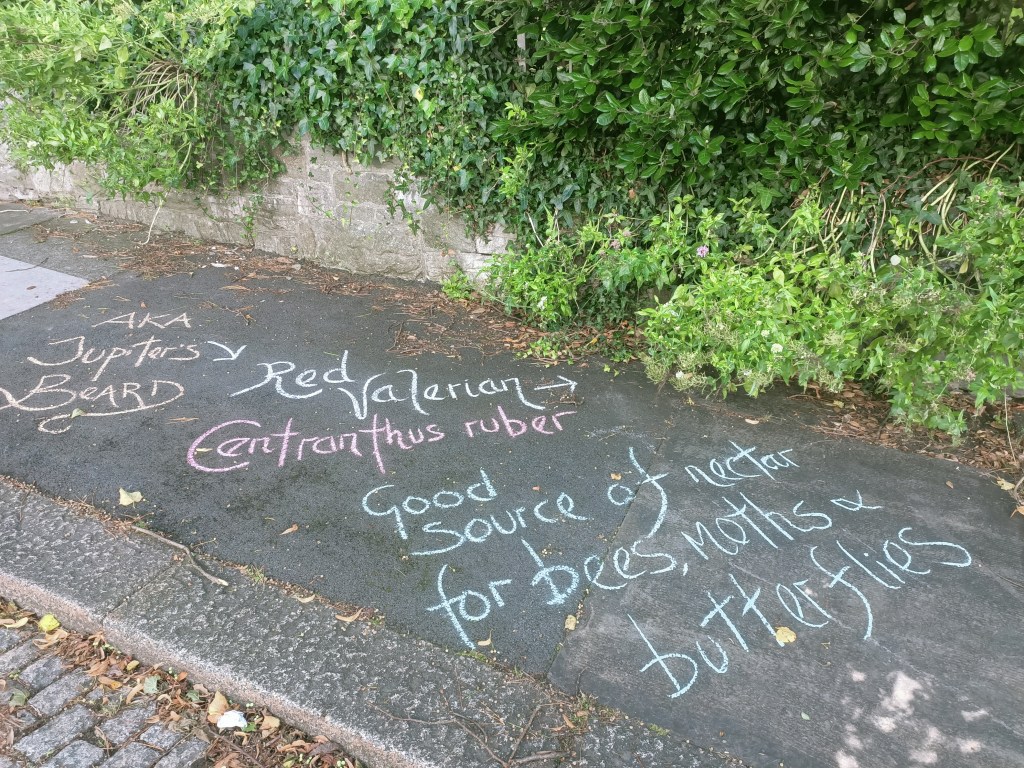 AKA
Jupiter's
BEARD
Red Valerian
Centranthus ruber
Good
source of nectar
for bees, moths &
butterflies